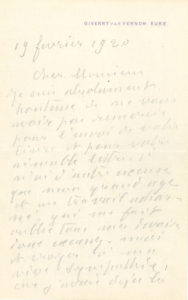 GIVERNY PAR VERNON EURE
19 février 1920
Cher Monsieur
je suis absolument
honteux de ne vous
avoir pas remercié
pour l'envoi de votre
livre et pour votre
aimable lettre
n'ai d'autre excuse
que mon grand age
et un travail
qui me fait
oublier tous mes devoirs
donc excusez-moi
et croyez à ma
vive sympathie